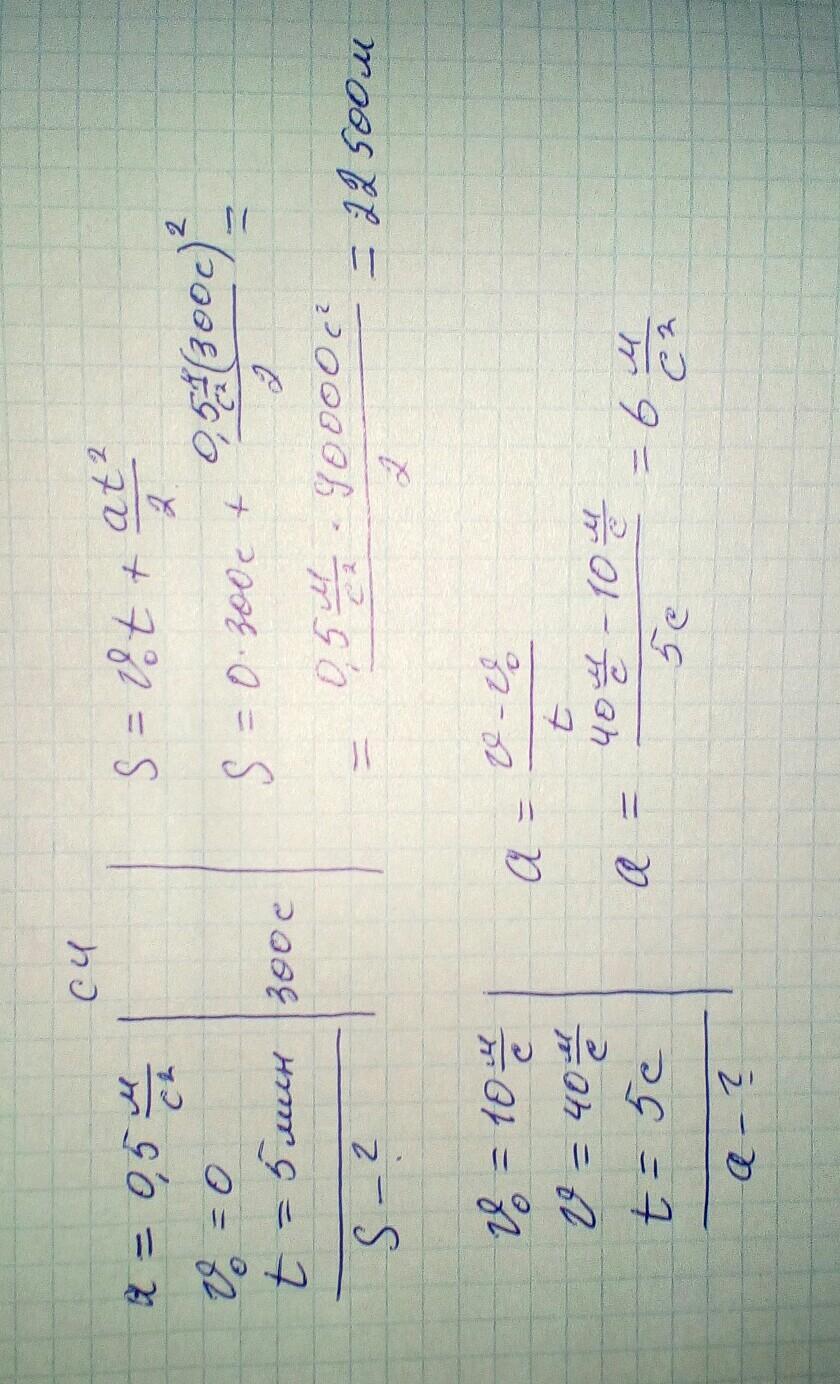 СИ
a = 0,5 м/с²
v₀ = 0
t = 5 мин | 300 с
S - ?
S = v₀t + at²/2
S = 0·300с + 0,5 м/с² (300с)²/2 =
= 0,5 м/с² · 90000с²/2 = 22500м
v₀ = 10 м/с
v = 40 м/с
t = 5с
a - ?
a = v - v₀/t
a = 40 м/с - 10 м/с/5с = 6 м/с²